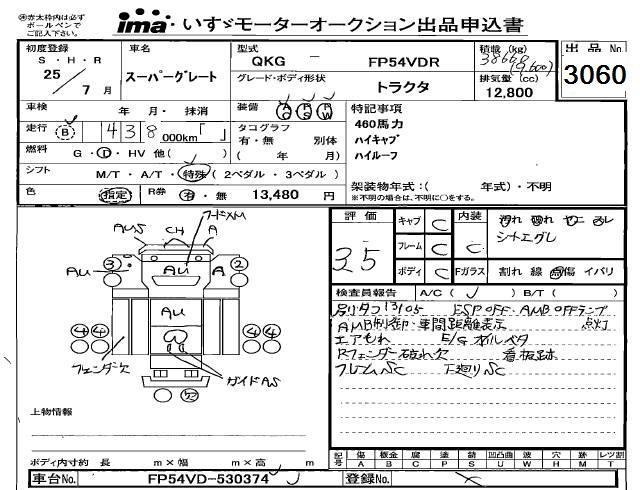 ㊟赤太枠内は必ず
ボールペンで
ご記入下さい。
ima・いすゞモーターオークション出品申込書
初度登録
S・H・R
25
7 月
車名
スーパーグレート
型式
QKG － FP54VDR
グレード・ボディ形状
トラクタ
積載 (kg)
(9,600)
排気量 (cc)
12,800
出品No.
3060
車検 年 月・ 抹消
装備 AC PS PW
走行 B 438 000km「 」
タコグラフ
有・無 別体
( 年 月)
燃料 G・D・HV 他( )
シフト
M/T・A/T・特殊(2ペダル・3ペダル)
色 指定
R券 有・無 13,480 円
特記事項
460馬力
ハイキャブ
ハイルーフ
架装物年式:( 年式)・不明
※不明の場合は、不明に○をする。
評価
3.5
キャブ C
フレーム C
ボディ C
内装 C
Fガラス
汚れ 破れ
シートエグレ
割れ 線 傷 イバリ
検査員報告 A/C( ) B/T( )
ESP OFF・AMB OFFランプ
点灯
AMB制御・車間距離表示
エアもれ E/Gオイルベタ
Rフェンダー破れ欠 看板跡
フレームSC 下廻りSC
AUS
CH
A
3
2
AU
AU
A
AU
4 4
4 4
フェンダー欠
ガイドAS
欠
上物情報
ボディ内寸約 長 m×幅 m×高 m
記号
傷 A
板金 B
腐 C
塗 P
錆 S
凹凸曲 U
波 W
穴 H
跡 M
レツ割 T
車台No. FP54VD-530374
登録No.